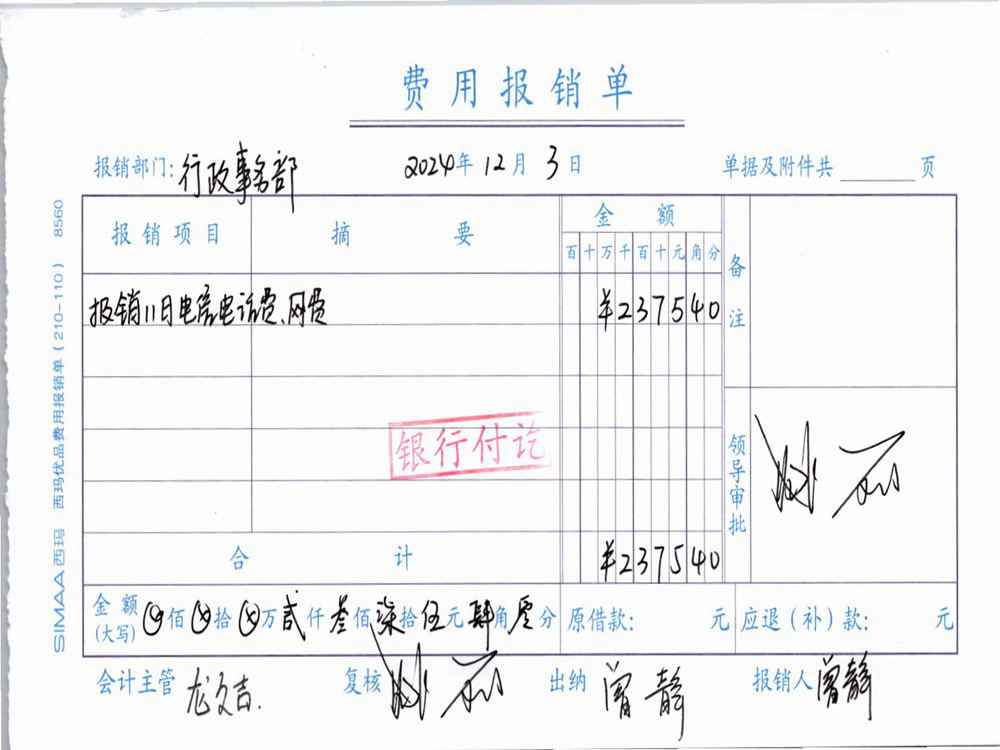 费用报销单
报销部门：行政事务部 2024年12月3日 单据及附件共 页
报销项目 摘要 金额 备注
百十万千百十元角分
报销11月电信电话费、网费 ¥237540
银行付讫
领导审批
合计 ¥237540
金额(大写) 佰 拾 万贰仟叁佰柒拾伍元肆角零分 原借款： 元 应退（补）款： 元
会计主管 龙文吉. 复核 出纳 曾静 报销人 曾静
SIMAA西玛 西玛优品费用报销单（210-110） 8560